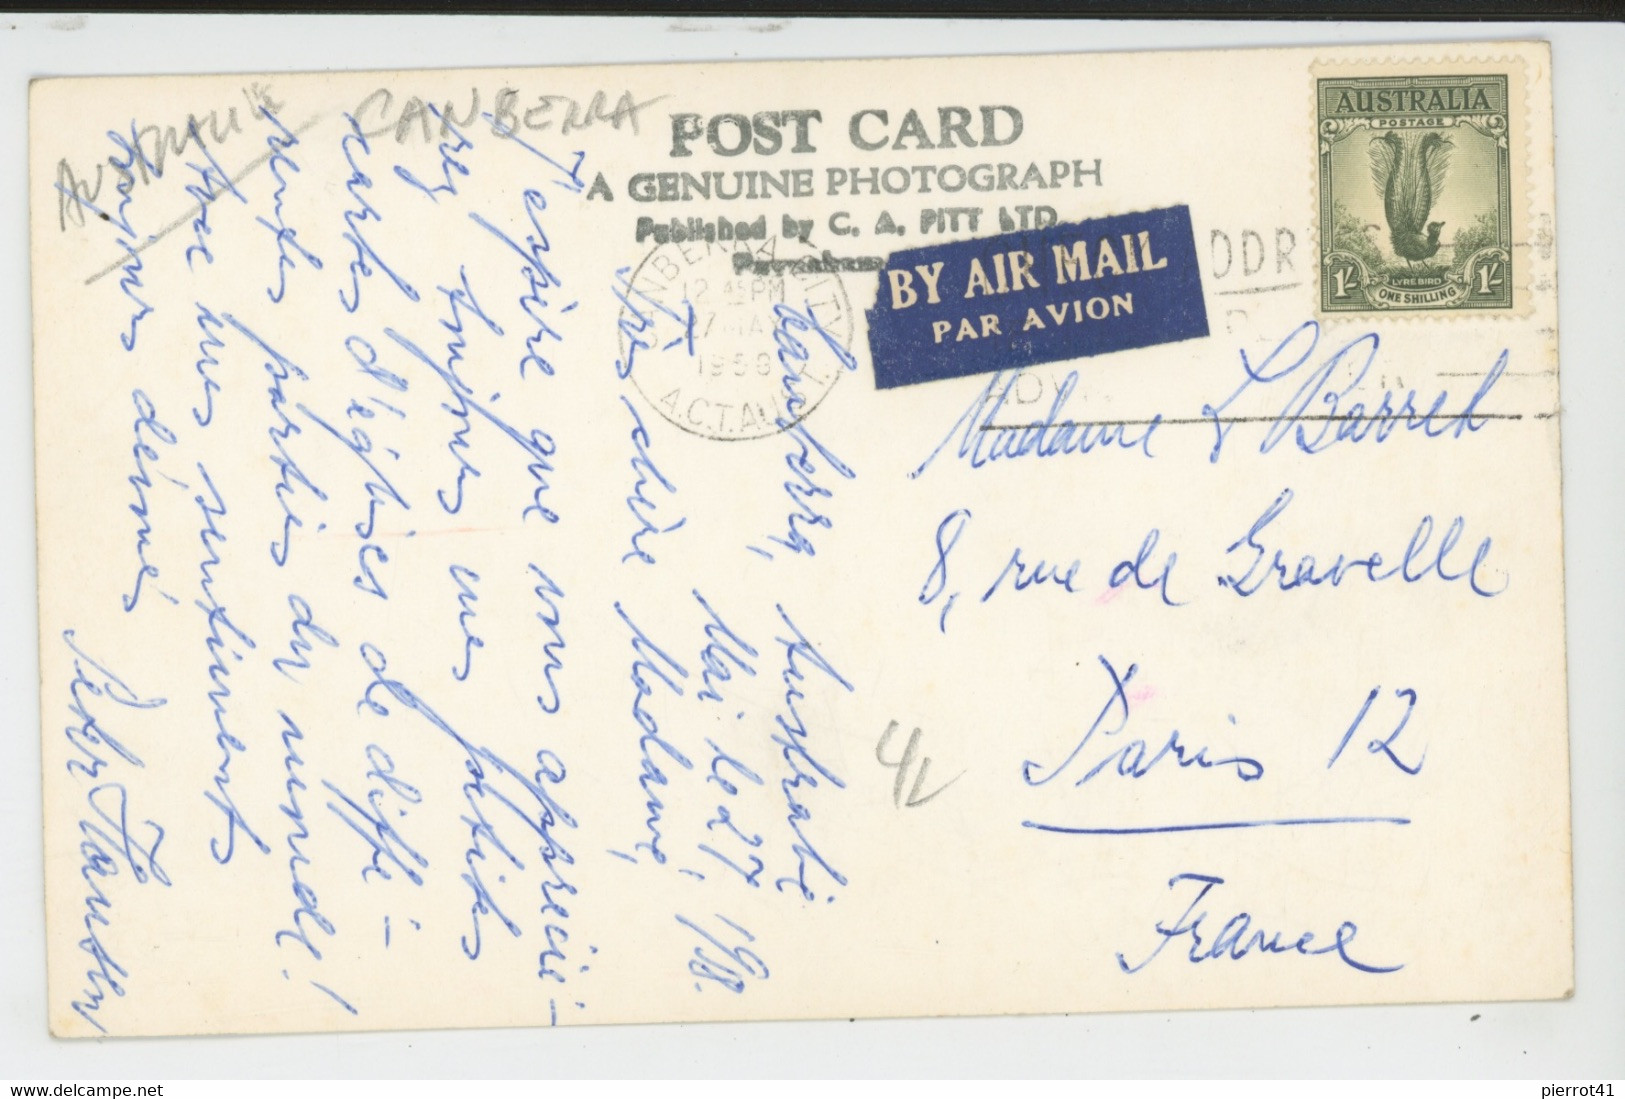 AUSTRALIE CANBERRA
POST CARD
A GENUINE PHOTOGRAPH
Published by C. A. PITT LTD.
BY AIR MAIL
PAR AVION
CANBERRA CITY
12 45 PM
27 MAY
1958
A.C.T. AUST.
AUSTRALIA
POSTAGE
LYRE BIRD
1/- ONE SHILLING 1/-
Canberra, Australie
Mai le 27, 1958.
Très chère Madame,
J'espère que vous apprecie-
rez toujours mes petites
cartes d'églises de diffé-
rentes parties du monde!
Avec mes sentiments
toujours dévoués
Peter
Madame L Barret
8, rue de Gravelle
Paris 12
France
42
pierrot41